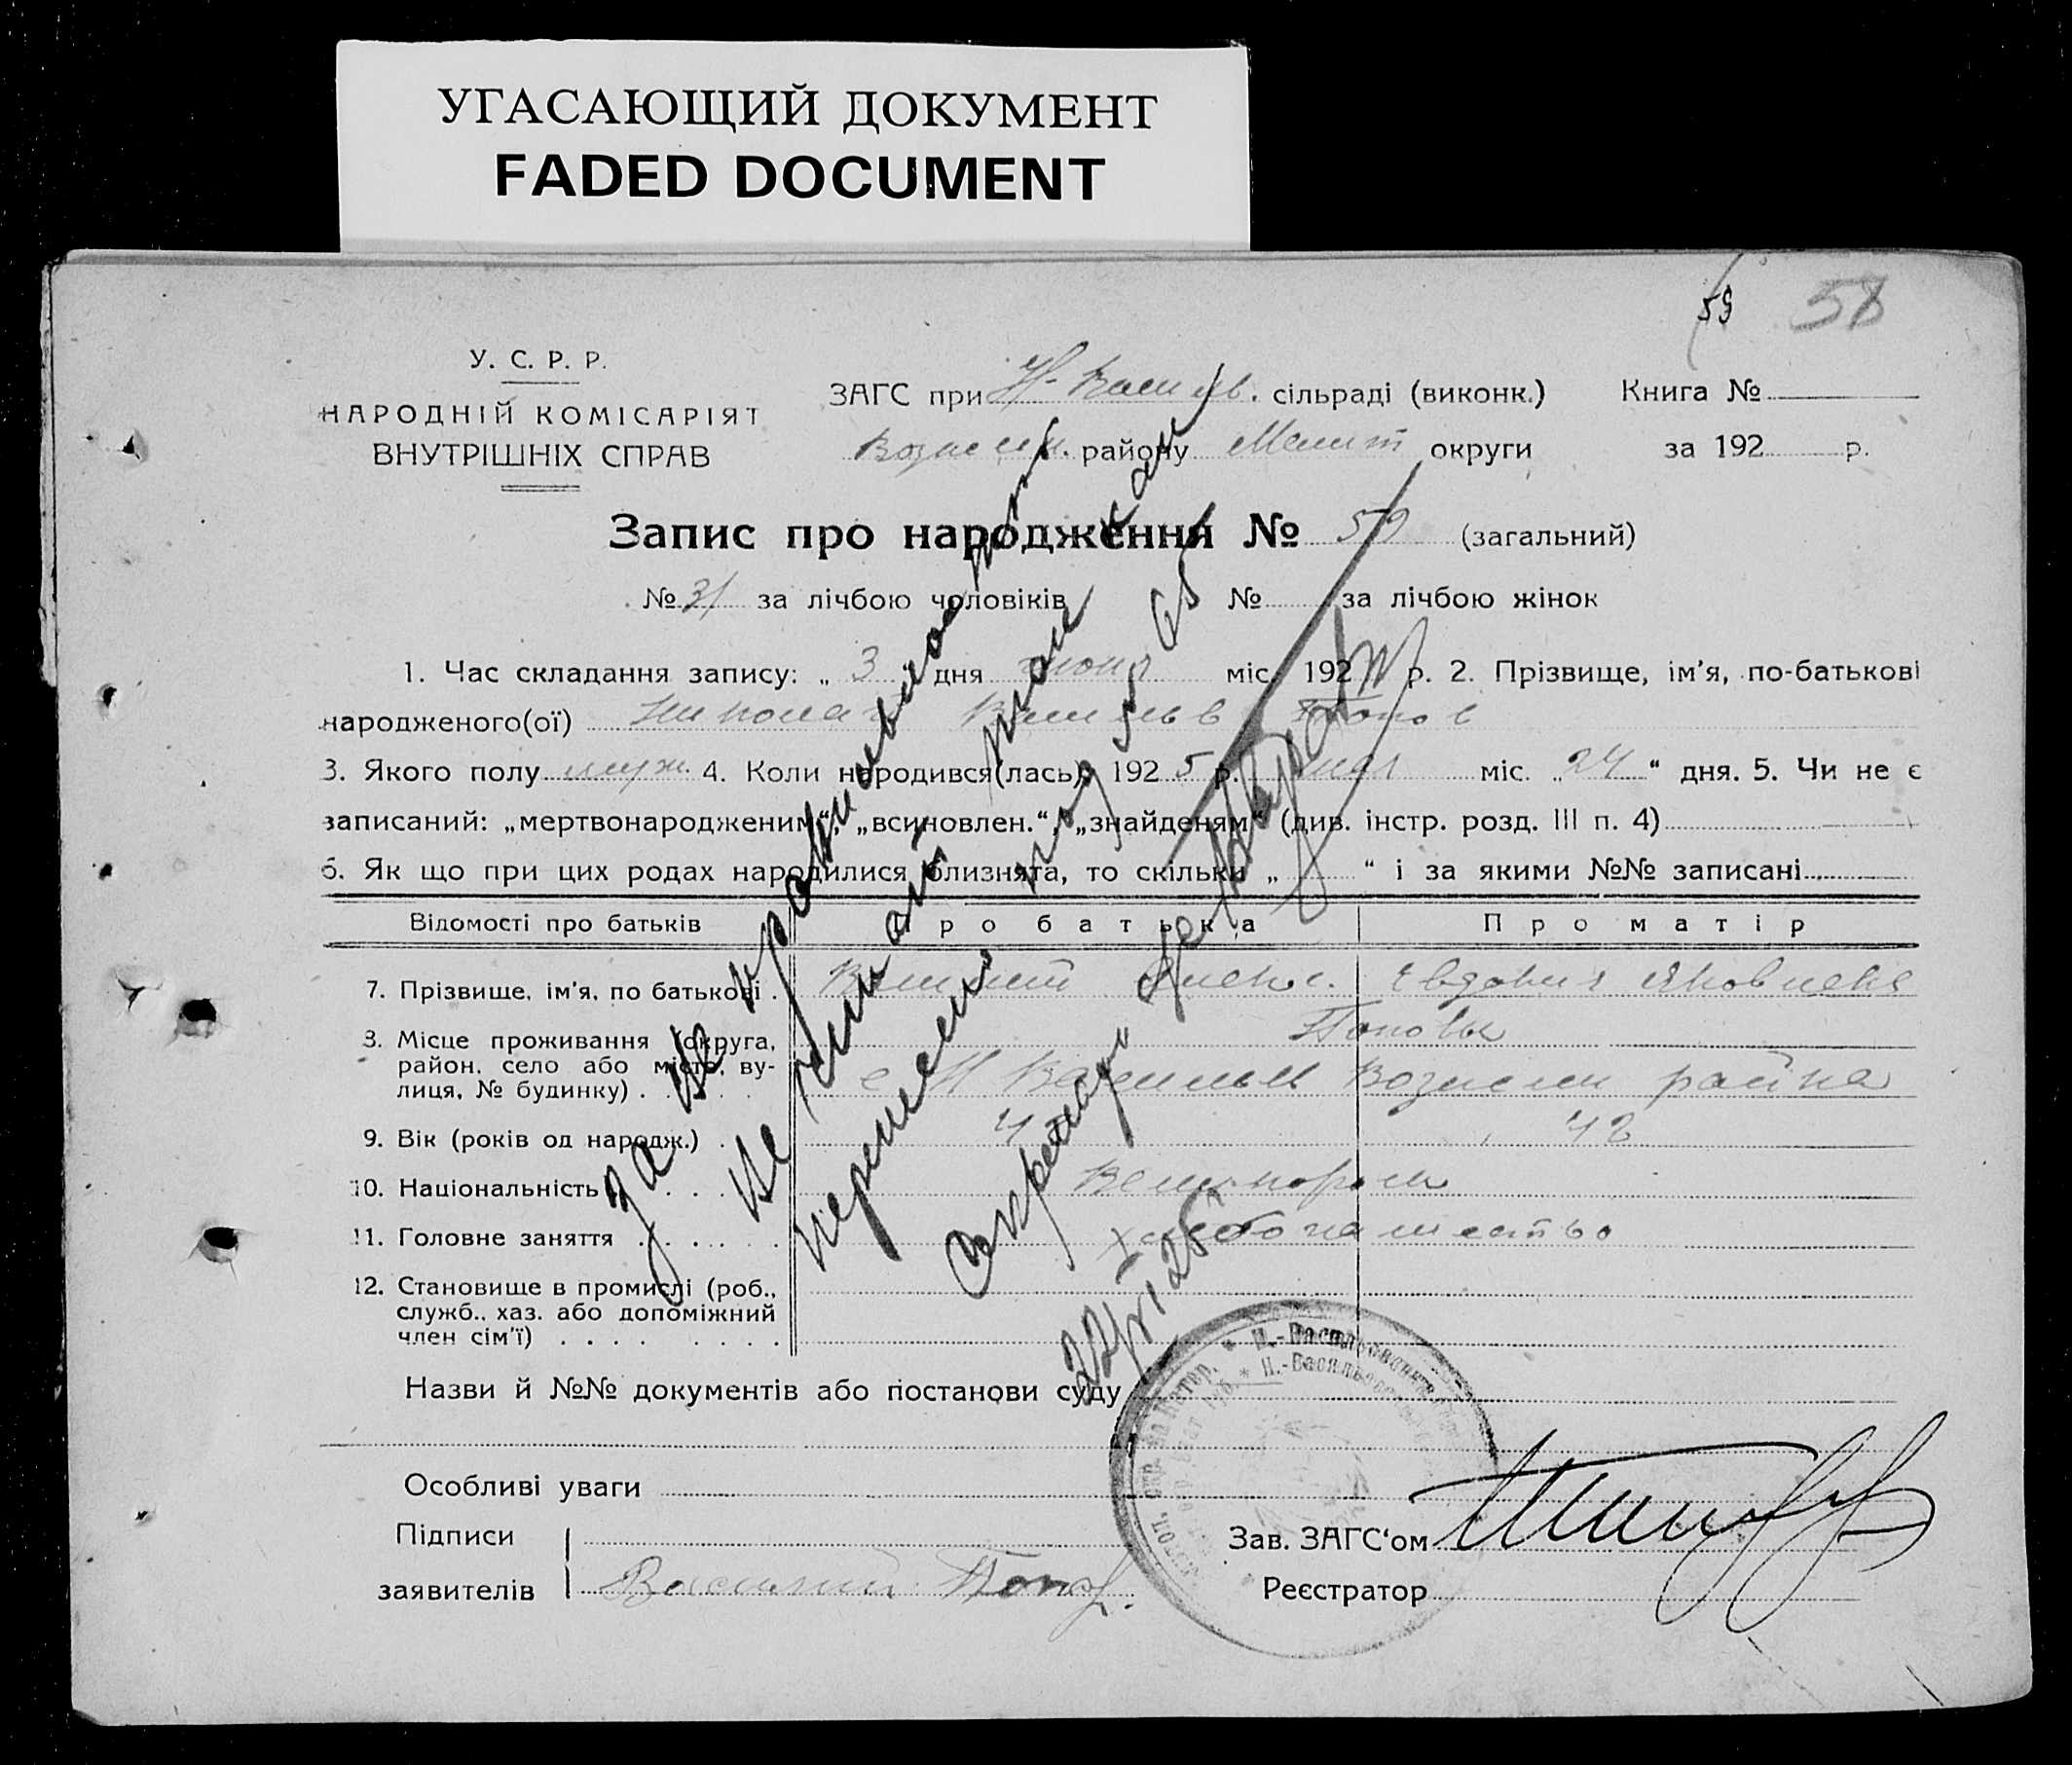 УГАСАЮЩИЙ ДОКУМЕНТ
FADED DOCUMENT
59 58
У. С. Р. Р.
НАРОДНІЙ КОМІСАРІЯТ
ВНУТРІШНІХ СПРАВ
ЗАГС при Н-Васильв. сільраді (виконк.) Книга №
Вознесен. району Мелит округи за 192 р.
Запис про народження № 59 (загальний)
№ 31 за лічбою чоловіків № за лічбою жінок
1. Час складання запису: „ 3 дня июня міс. 192 р. 2. Прізвище, ім'я, по-батькові
народженого(ої) Николай Васильев Попов
3. Якого полу муж. 4. Коли народився(лась) 1925 р. мая міс. „24“ дня. 5. Чи не є
записаний: „мертвонародженим“, „всиновлен.“, „знайденям“ (див. інстр. розд. III п. 4)
6. Як що при цих родах народилися близнята, то скільки „ “ і за якими №№ записані
Відомості про батьків Про батька Про матір
7. Прізвище, ім'я, по батькові . Алекс. Евдокия Яковлевна
Поповы
8. Місце проживання (округа,
район, село або місто, ву-
лиця, № будинку) . . . . . с Н Васильев Вознесен района
9. Вік (років од народж.) . 42
10. Національність . . . . Великорос
11. Головне заняття . . . . . . хлебопашество
12. Становище в промислі (роб.,
служб., хаз. або допоміжний
член сім'ї) . . . . . . . . .
за не
не
Секретарь
22/VI 25
Назви й №№ документів або постанови суду
Особливі уваги
Підписи
заявителів Василий Попов.
Зав. ЗАГС'ом
Реєстратор